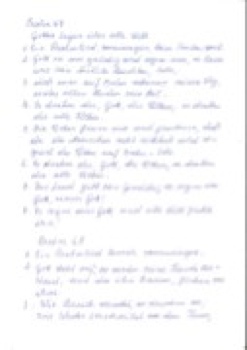 Psalm 67
Gottes Segen über alle Welt
1. Ein Psalmlied vorzusingen, beim Saitenspiel.
2. Gott sei uns gnädig und segne uns, er lasse
uns sein Antlitz leuchten, Sela,
3. dass man auf Erden erkenne seinen Weg,
unter allen Heiden sein Heil.
4. Es danken dir, Gott, die Völker, es danken
dir alle Völker.
5. Die Völker freuen sich und jauchzen, dass
du die Menschen recht richtest und
regierst die Völker auf Erden. Sela.
6. Es danken dir, Gott, die Völker, es danken
dir alle Völker.
7. Das Land gibt sein Gewächs; es segne uns
Gott, unser Gott!
8. Es segne uns Gott und alle Welt fürchte
ihn!
Psalm 68
1. Ein Psalmlied vorzusingen.
2. Gott steht auf; so werden seine Feinde zerstreut
und die ihn hassen, fliehen
vor ihm.
3. Wie Rauch verweht, so
wie Wachs zerschmilzt vor dem Feuer,